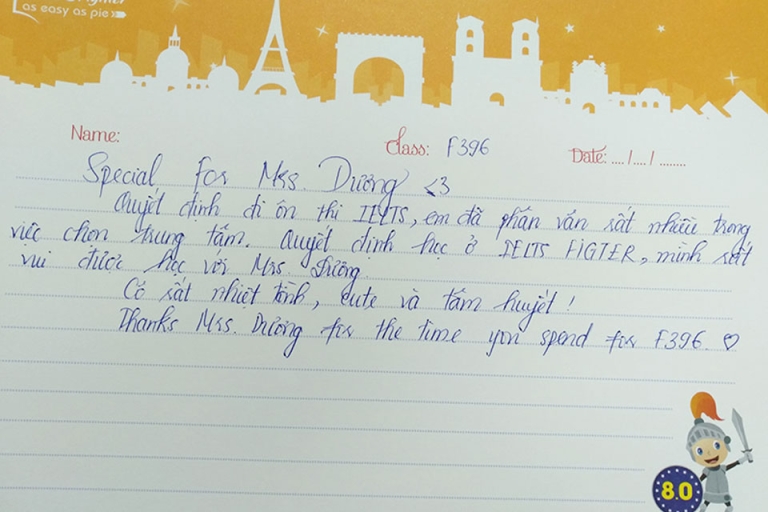 as easy as pie
Name:
Class: F396
Date: .... /.... / ........
Special for Mrs. Dương <3
Quyết định đi ôn thi IELTS, em đã phân vân rất nhiều trong
việc chọn trung tâm. Quyết định học ở IELTS FIGTER, mình rất
vui được học với Mrs. Dương.
Cô rất nhiệt tình, cute và tâm huyết!
Thanks Mrs. Dương for the time you spend for F396. ♡
8.0